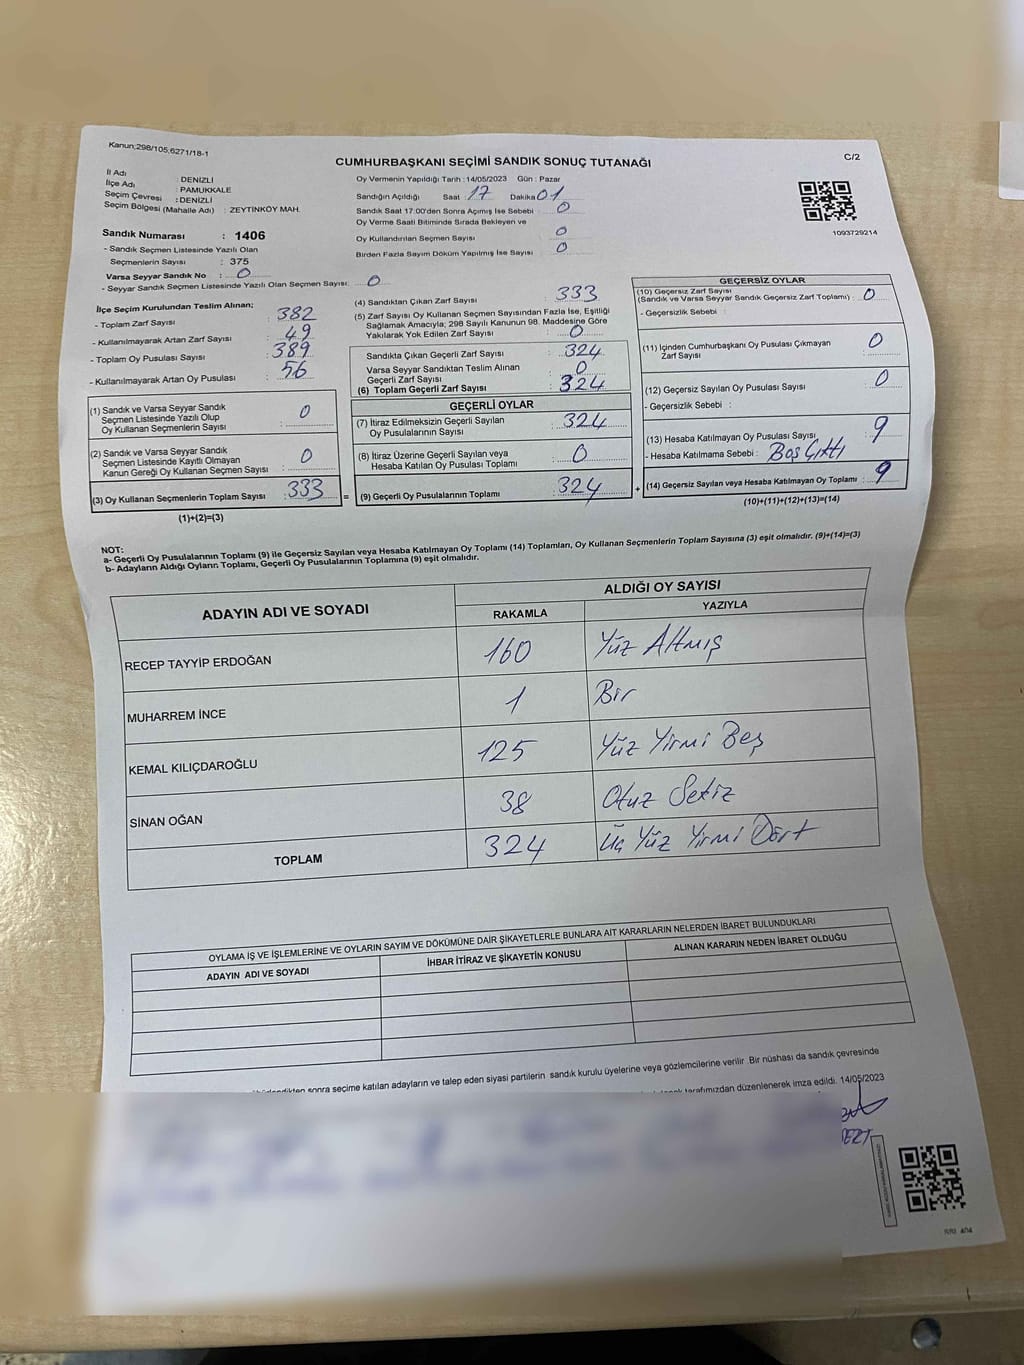 Kanun;298/105,6271/18-1
CUMHURBAŞKANI SEÇİMİ SANDIK SONUÇ TUTANAĞI
C/2
İl Adı : DENİZLİ
İlçe Adı : PAMUKKALE
Seçim Çevresi : DENİZLİ
Seçim Bölgesi (Mahalle Adı) : ZEYTİNKÖY MAH.
Sandık Numarası : 1406
- Sandık Seçmen Listesinde Yazılı Olan
Seçmenlerin Sayısı : 375
Varsa Seyyar Sandık No : 0
- Seyyar Sandık Seçmen Listesinde Yazılı Olan Seçmen Sayısı: 0
Oy Vermenin Yapıldığı Tarih : 14/05/2023 Gün : Pazar
Sandığın Açıldığı Saat : 17 Dakika 01
Sandık Saat 17:00'den Sonra Açımış İse Sebebi : 0
Oy Verme Saati Bitiminde Sırada Bekleyen ve
Oy Kullandırılan Seçmen Sayısı : 0
Birden Fazla Sayım Döküm Yapılmış İse Sayısı : 0
1093729214
İlçe Seçim Kurulundan Teslim Alınan;
- Toplam Zarf Sayısı : 382
- Kullanılmayarak Artan Zarf Sayısı : 49
- Toplam Oy Pusulası Sayısı : 389
- Kullanılmayarak Artan Oy Pusulası : 56
(1) Sandık ve Varsa Seyyar Sandık
Seçmen Listesinde Yazılı Olup
Oy Kullanan Seçmenlerin Sayısı : 0
(2) Sandık ve Varsa Seyyar Sandık
Seçmen Listesinde Kayıtlı Olmayan
Kanun Gereği Oy Kullanan Seçmen Sayısı : 0
(3) Oy Kullanan Seçmenlerin Toplam Sayısı : 333 =
(1)+(2)=(3)
(4) Sandıktan Çıkan Zarf Sayısı : 333
(5) Zarf Sayısı Oy Kullanan Seçmen Sayısından Fazla İse, Eşitliği
Sağlamak Amacıyla; 298 Sayılı Kanunun 98. Maddesine Göre
Yakılarak Yok Edilen Zarf Sayısı : 0
Sandıkta Çıkan Geçerli Zarf Sayısı : 324
Varsa Seyyar Sandıktan Teslim Alınan
Geçerli Zarf Sayısı : 0
(6) Toplam Geçerli Zarf Sayısı : 324
GEÇERLİ OYLAR
(7) İtiraz Edilmeksizin Geçerli Sayılan
Oy Pusulalarının Sayısı : 324
(8) İtiraz Üzerine Geçerli Sayılan veya
Hesaba Katılan Oy Pusulası Toplamı : 0
(9) Geçerli Oy Pusulalarının Toplamı : 324 +
GEÇERSİZ OYLAR
(10) Geçersiz Zarf Sayısı
(Sandık ve Varsa Seyyar Sandık Geçersiz Zarf Toplamı) : 0
- Geçersizlik Sebebi :
(11) İçinden Cumhurbaşkanı Oy Pusulası Çıkmayan
Zarf Sayısı : 0
(12) Geçersiz Sayılan Oy Pusulası Sayısı : 0
- Geçersizlik Sebebi :
(13) Hesaba Katılmayan Oy Pusulası Sayısı, : 9
- Hesaba Katılmama Sebebi : Boş Çıktı
(14) Geçersiz Sayılan veya Hesaba Katılmayan Oy Toplamı : 9
(10)+(11)+(12)+(13)=(14)
NOT:
a- Geçerli Oy Pusulalarının Toplamı (9) ile Geçersiz Sayılan veya Hesaba Katılmayan Oy Toplamı (14) Toplamları, Oy Kullanan Seçmenlerin Toplam Sayısına (3) eşit olmalıdır. (9)+(14)=(3)
b- Adayların Aldığı Oyların Toplamı, Geçerli Oy Pusulalarının Toplamına (9) eşit olmalıdır.
ADAYIN ADI VE SOYADI
ALDIĞI OY SAYISI
RAKAMLA YAZIYLA
RECEP TAYYİP ERDOĞAN 160 Yüz Altmış
MUHARREM İNCE 1 Bir
KEMAL KILIÇDAROĞLU 125 Yüz Yirmi Beş
SİNAN OĞAN 38 Otuz Sekiz
TOPLAM 324 Üç Yüz Yirmi Dört
OYLAMA İŞ VE İŞLEMLERİNE VE OYLARIN SAYIM VE DÖKÜMÜNE DAİR ŞİKAYETLERLE BUNLARA AİT KARARLARIN NELERDEN İBARET BULUNDUKLARI
ADAYIN ADI VE SOYADI İHBAR İTİRAZ VE ŞİKAYETİN KONUSU ALINAN KARARIN NEDEN İBARET OLDUĞU
sonra seçime katılan adayların ve talep eden siyasi partilerin sandık kurulu üyelerine veya gözlemcilerine verilir .Bir nüshası da sandık çevresinde
tarafımızdan düzenlenerek imza edildi. 14/05/2023